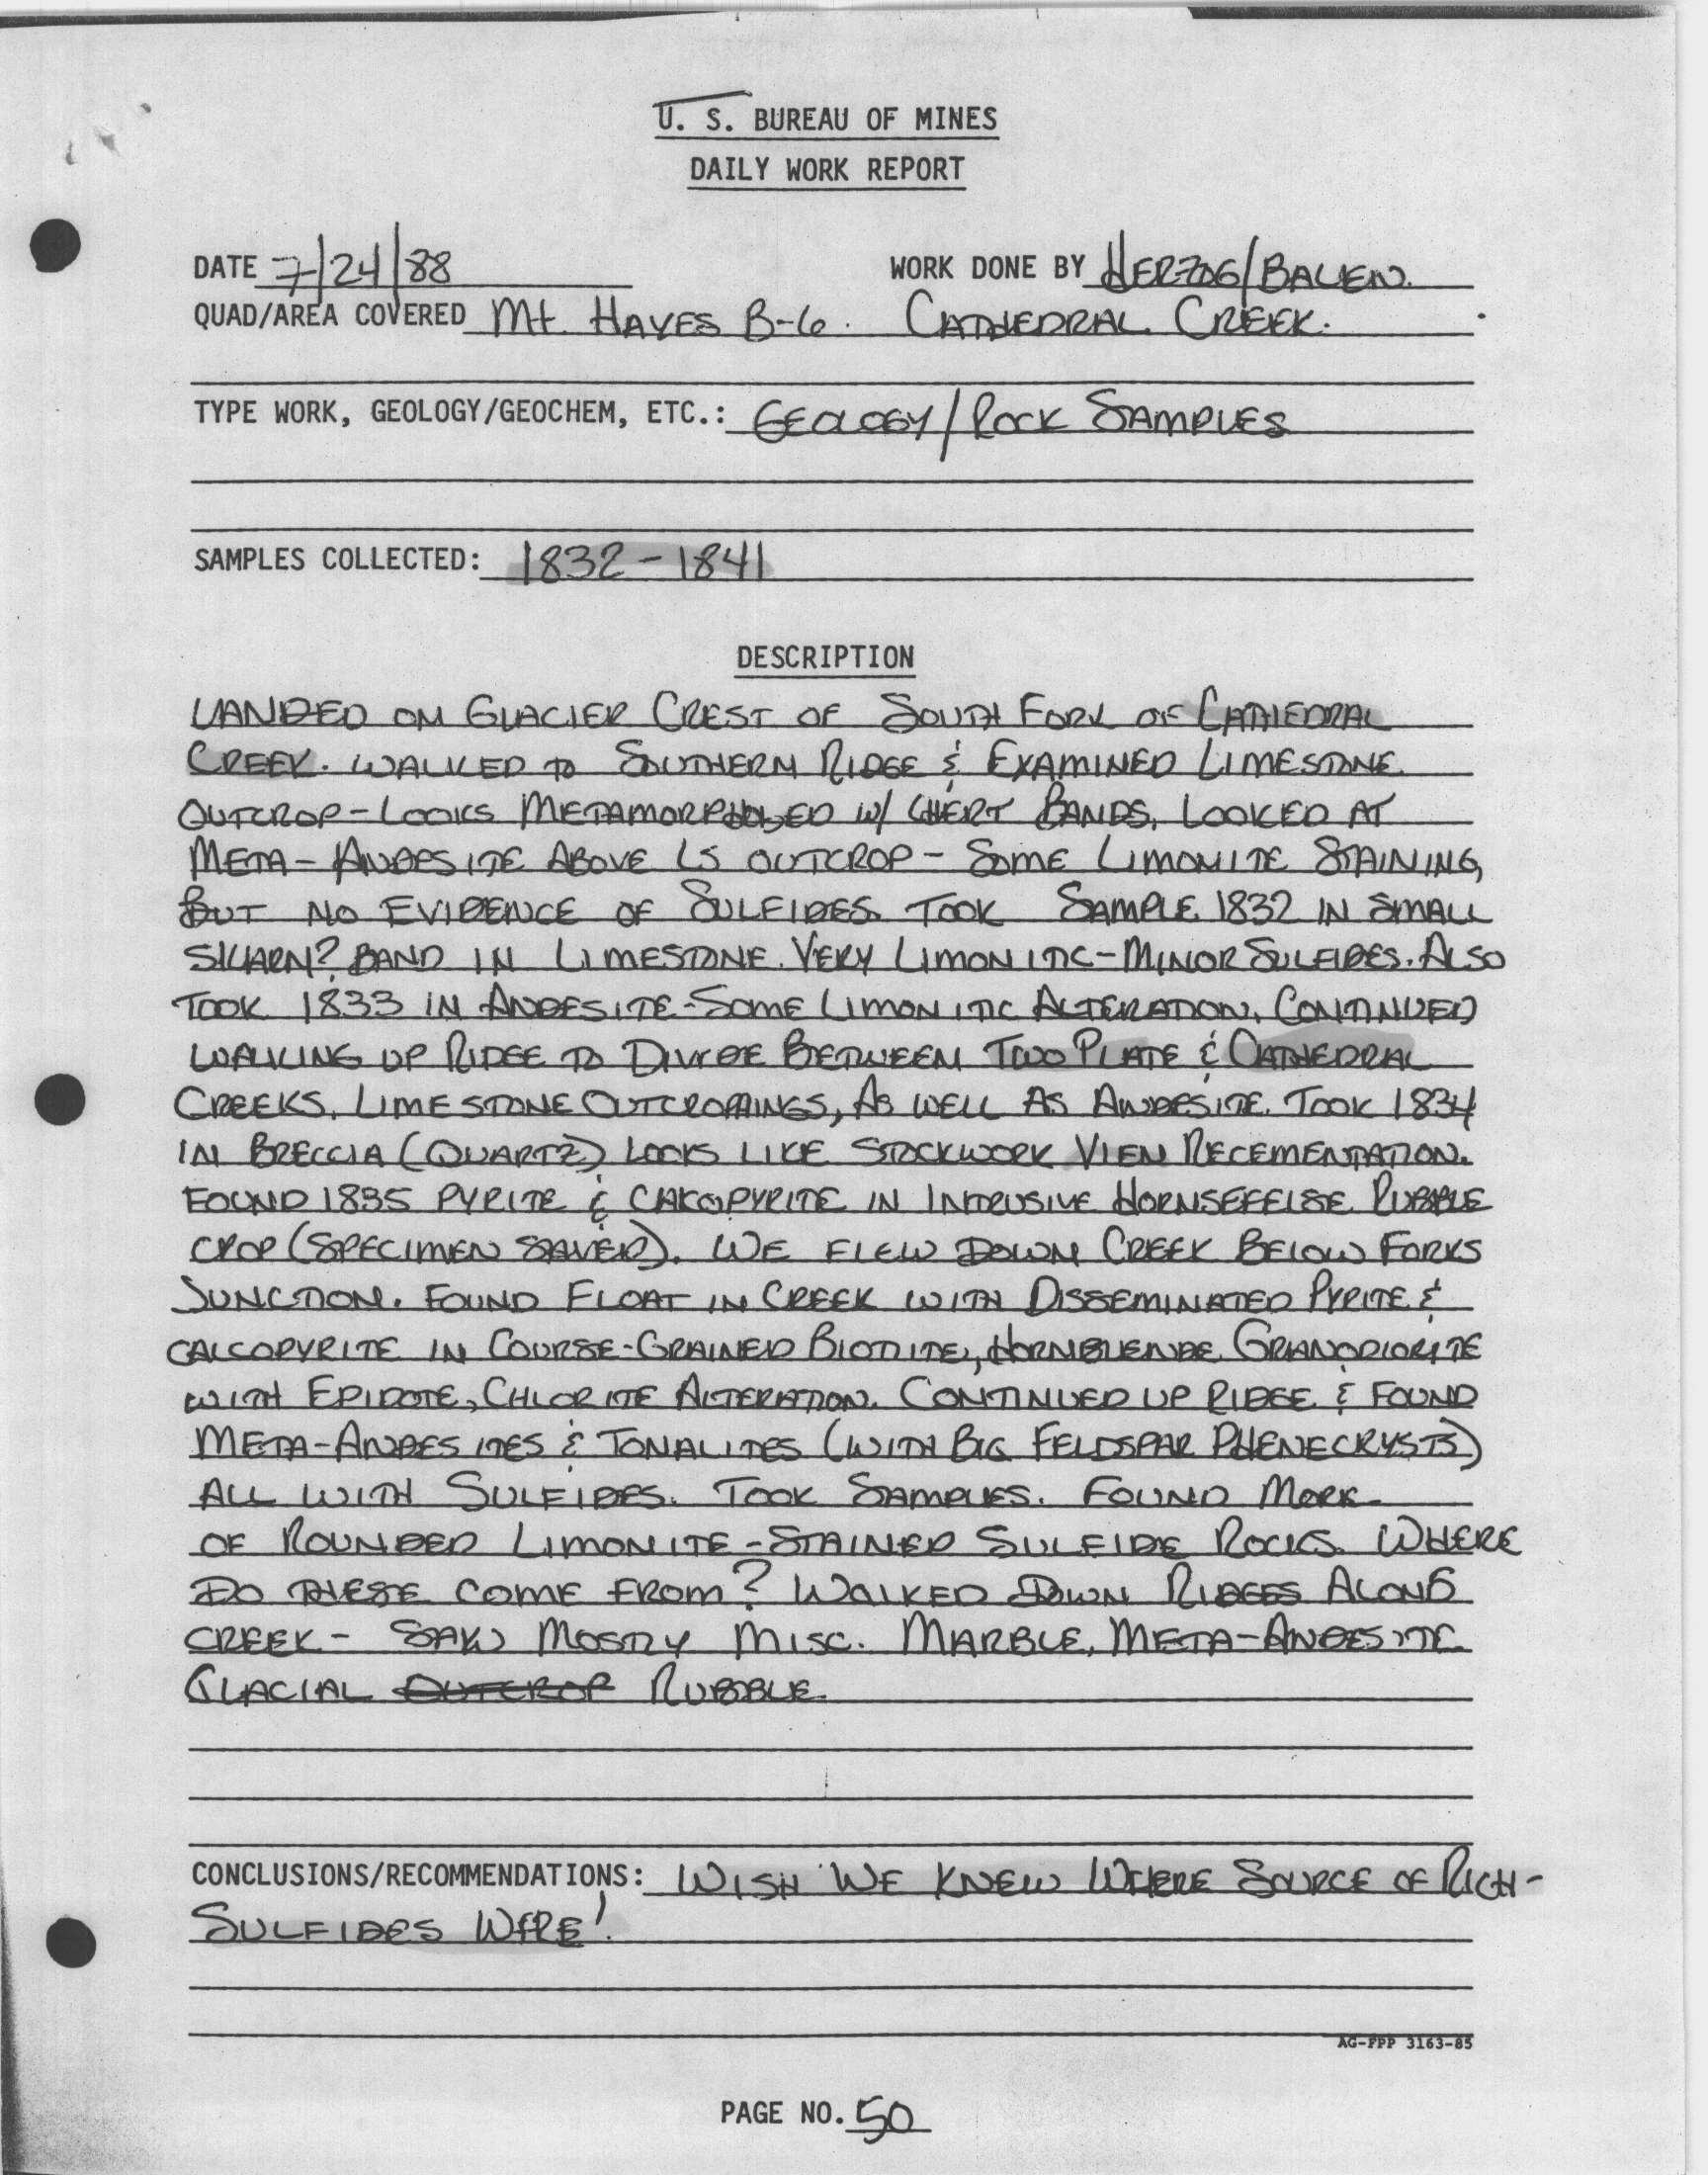 U. S. BUREAU OF MINES
DAILY WORK REPORT
DATE 7/24/88 WORK DONE BY HERZOG/BALEN.
QUAD/AREA COVERED Mt. HAYES B-6. CATHEDRAL CREEK.
TYPE WORK, GEOLOGY/GEOCHEM, ETC.: GEOLOGY/ROCK SAMPLES
SAMPLES COLLECTED: 1832-1841
DESCRIPTION
LANDED ON GLACIER CREST OF SOUTH FORK OF CATHEDRAL
CREEK. WALKED TO SOUTHERN RIDGE & EXAMINED LIMESTONE
OUTCROP - LOOKS METAMORPHOSED W/ CHERT BANDS. LOOKED AT
META-ANDESITE ABOVE LS OUTCROP - SOME LIMONITE STAINING,
BUT NO EVIDENCE OF SULFIDES. TOOK SAMPLE 1832 IN SMALL
SKARN? BAND IN LIMESTONE. VERY LIMONITIC-MINOR SULFIDES. ALSO
TOOK 1833 IN ANDESITE-SOME LIMONITIC ALTERATION. CONTINUED
WALKING UP RIDGE TO DIVIDE BETWEEN TWO PLATE & CATHEDRAL
CREEKS. LIMESTONE OUTCROPPINGS, AS WELL AS ANDESITE. TOOK 1834
IN BRECCIA (QUARTZ) LOOKS LIKE STOCKWORK VIEN RECEMENTATION.
FOUND 1835 PYRITE & CHALCOPYRITE IN INTRUSIVE HORNSEFELSE RUBBLE
CROP (SPECIMEN SAVED). WE FLEW DOWN CREEK BELOW FORKS
JUNCTION. FOUND FLOAT IN CREEK WITH DISSEMINATED PYRITE &
CALCOPYRITE IN COURSE-GRAINED BIOTITE, HORNBLENDE GRANODIORITE
WITH EPIDOTE, CHLORITE ALTERATION. CONTINUED UP RIDGE & FOUND
META-ANDESITES & TONALITES (WITH BIG FELDSPAR PHENECRYSTS)
ALL WITH SULFIDES. TOOK SAMPLES. FOUND MORE
OF ROUNDED LIMONITE-STAINED SULFIDE ROCKS. WHERE
DO THESE COME FROM? WALKED DOWN RIDGES ALONG
CREEK - SAW MOSTLY MISC. MARBLE, META-ANDESITE
GLACIAL OUTCROP RUBBLE.
CONCLUSIONS/RECOMMENDATIONS: WISH WE KNEW WHERE SOURCE OF RICH-
SULFIDES WERE!
AG-FPP 3163-85
PAGE NO. 50